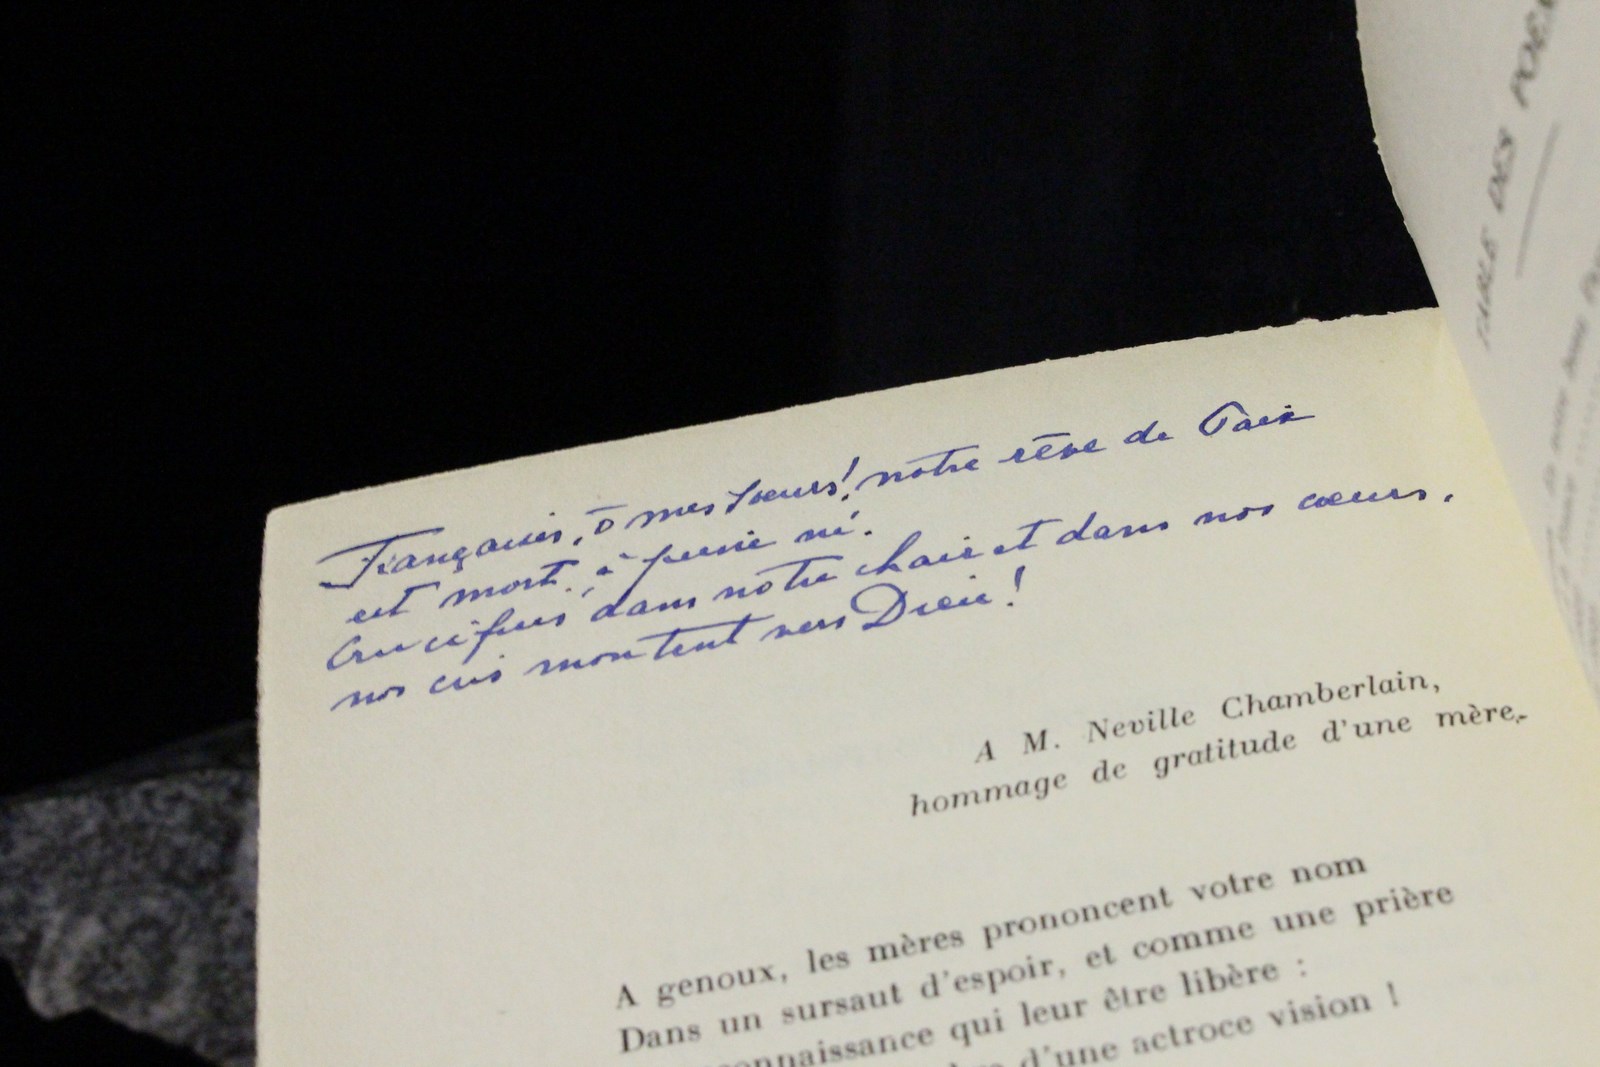 Françaises, ô mes soeurs! notre rêve de Paix
est mort, à peine né.
Crucifiés dans notre chair et dans nos cœurs,
nos cris montent vers Dieu!
A M. Neville Chamberlain,
hommage de gratitude d'une mère,
A genoux, les mères prononcent votre nom
Dans un sursaut d'espoir, et comme une prière
connaissance qui leur être libère :
d'une actroce vision !
TABLE DES